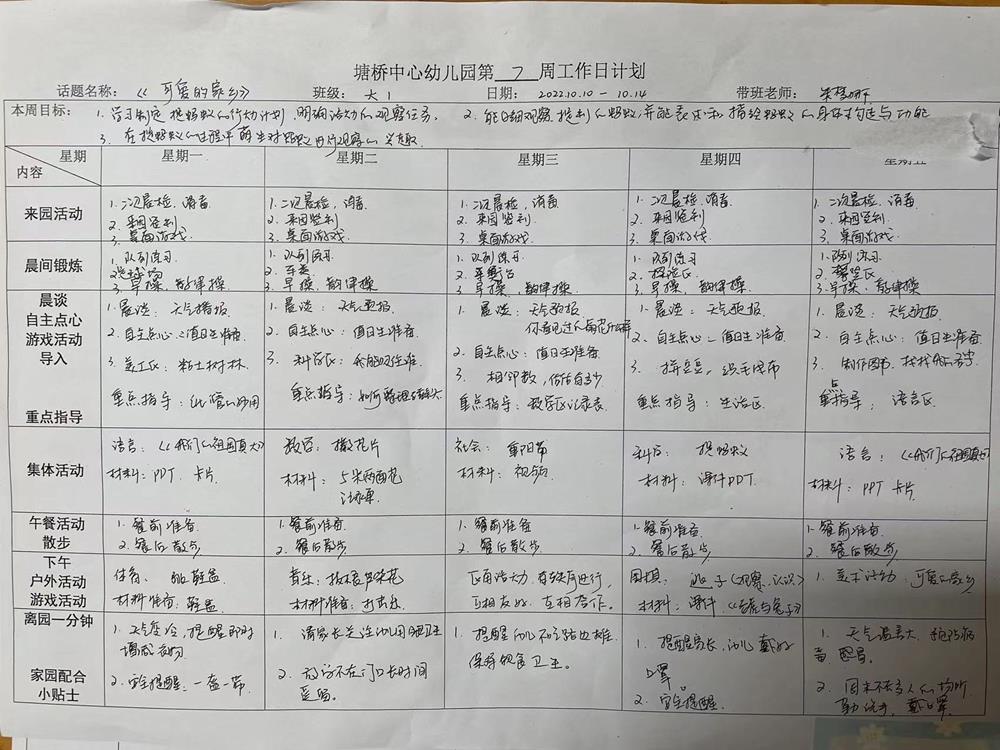 塘桥中心幼儿园第 7 周工作日计划
话题名称：《可爱的家乡》 班级：大1 日期：2022.10.10 - 10.14 带班老师：
本周目标：1. 学习制定找蚂蚁的行动计划，明确活动的观察任务。 2. 能仔细观察找到的蚂蚁，并能表述和描绘蚂蚁的身体构造与功能
3. 在找蚂蚁的过程中萌生对蚂蚁观察的兴趣.
星期 星期一 星期二 星期三 星期四 星期五
内容
来园活动
1. 二次晨检、消毒 1. 二次晨检、消毒 1. 二次晨检、消毒 1. 二次晨检、消毒 1. 二次晨检、消毒
2. 来园签到 2. 来园签到 2. 来园签到 2. 来园签到 2. 来园签到
3. 桌面游戏 3. 桌面游戏 3. 桌面游戏 3. 桌面游戏 3. 桌面游戏
晨间锻炼
1. 队列练习 1. 队列练习 1. 队列练习 1. 队列练习 1. 队列练习
3. 早操、韵律操 3. 早操、韵律操 3. 早操、韵律操 3. 早操、韵律操 3. 早操、韵律操
晨谈
自主点心
游戏活动
导入
重点指导
1. 晨谈：天气播报 1. 晨谈：天气预报 1. 晨谈：天气预报 1. 晨谈：天气预报 1. 晨谈：天气预报
2. 自主点心：值日生准备 2. 自主点心：值日生准备 2. 自主点心：值日生准备 2. 自主点心：值日生准备 2. 自主点心：值日生准备
3. 美工区：粘土树林 3. 科学区： 3. 相邻数，估估有多少 3. 拼豆豆，织毛线布 3. 制作图书，
重点指导： 的妙用 重点指导：如何 重点指导：数学区记录表 重点指导：生活区 重点指导：语言区
集体活动
语言：《我们的祖国真大》 数学：撒花片 社会：重阳节 科学：找蚂蚁 语言：《我们的祖国真大》
材料：PPT 卡片 材料： 材料：视频 材料：课件PPT 材料：PPT 卡片
午餐活动
散步
1. 餐前准备 1. 餐前准备 1. 餐前准备 1. 餐前准备 1. 餐前准备
2. 餐后散步 2. 餐后散步 2. 餐后散步 2. 餐后散步 2. 餐后散步
下午
户外活动
游戏活动
体育： 鞋盒 音乐： 互相友好，互相合作。 1. 美术活动：可爱的家乡
材料准备：鞋盒 材料准备： 材料：课件
离园一分钟
家园配合
小贴士
1. 天气变冷，提醒即时 1. 请家长关注幼儿用眼卫生 1. 提醒幼儿 1. 提醒家长，幼儿戴好 1. 天气温差大，
增减衣物 保持饮食卫生。 口罩。
2. 安全提醒：一盔一带 2. 放学不在门口长时间逗留。 2. 安全提醒。 2. 周末不去多人的场所
勤洗手，戴口罩